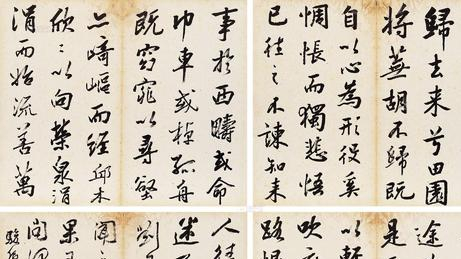 歸去来兮田園
将蕪胡不歸既
自以心為形役奚
惆悵而獨悲悟
已往之不諫知来
事於西疇或命
巾車或棹孤舟
既窈窕以尋壑
亦崎嶇而經邱木
欣〻以向榮泉涓
涓而始流善萬
途
是
以軽
吹衣
路恨
人
迷
劉
聞之
果
問